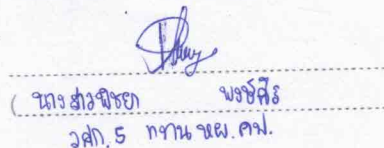 ( นางสาวพิชยา พงษ์ศิริ
วศก. 5 แทน หผ. คป.